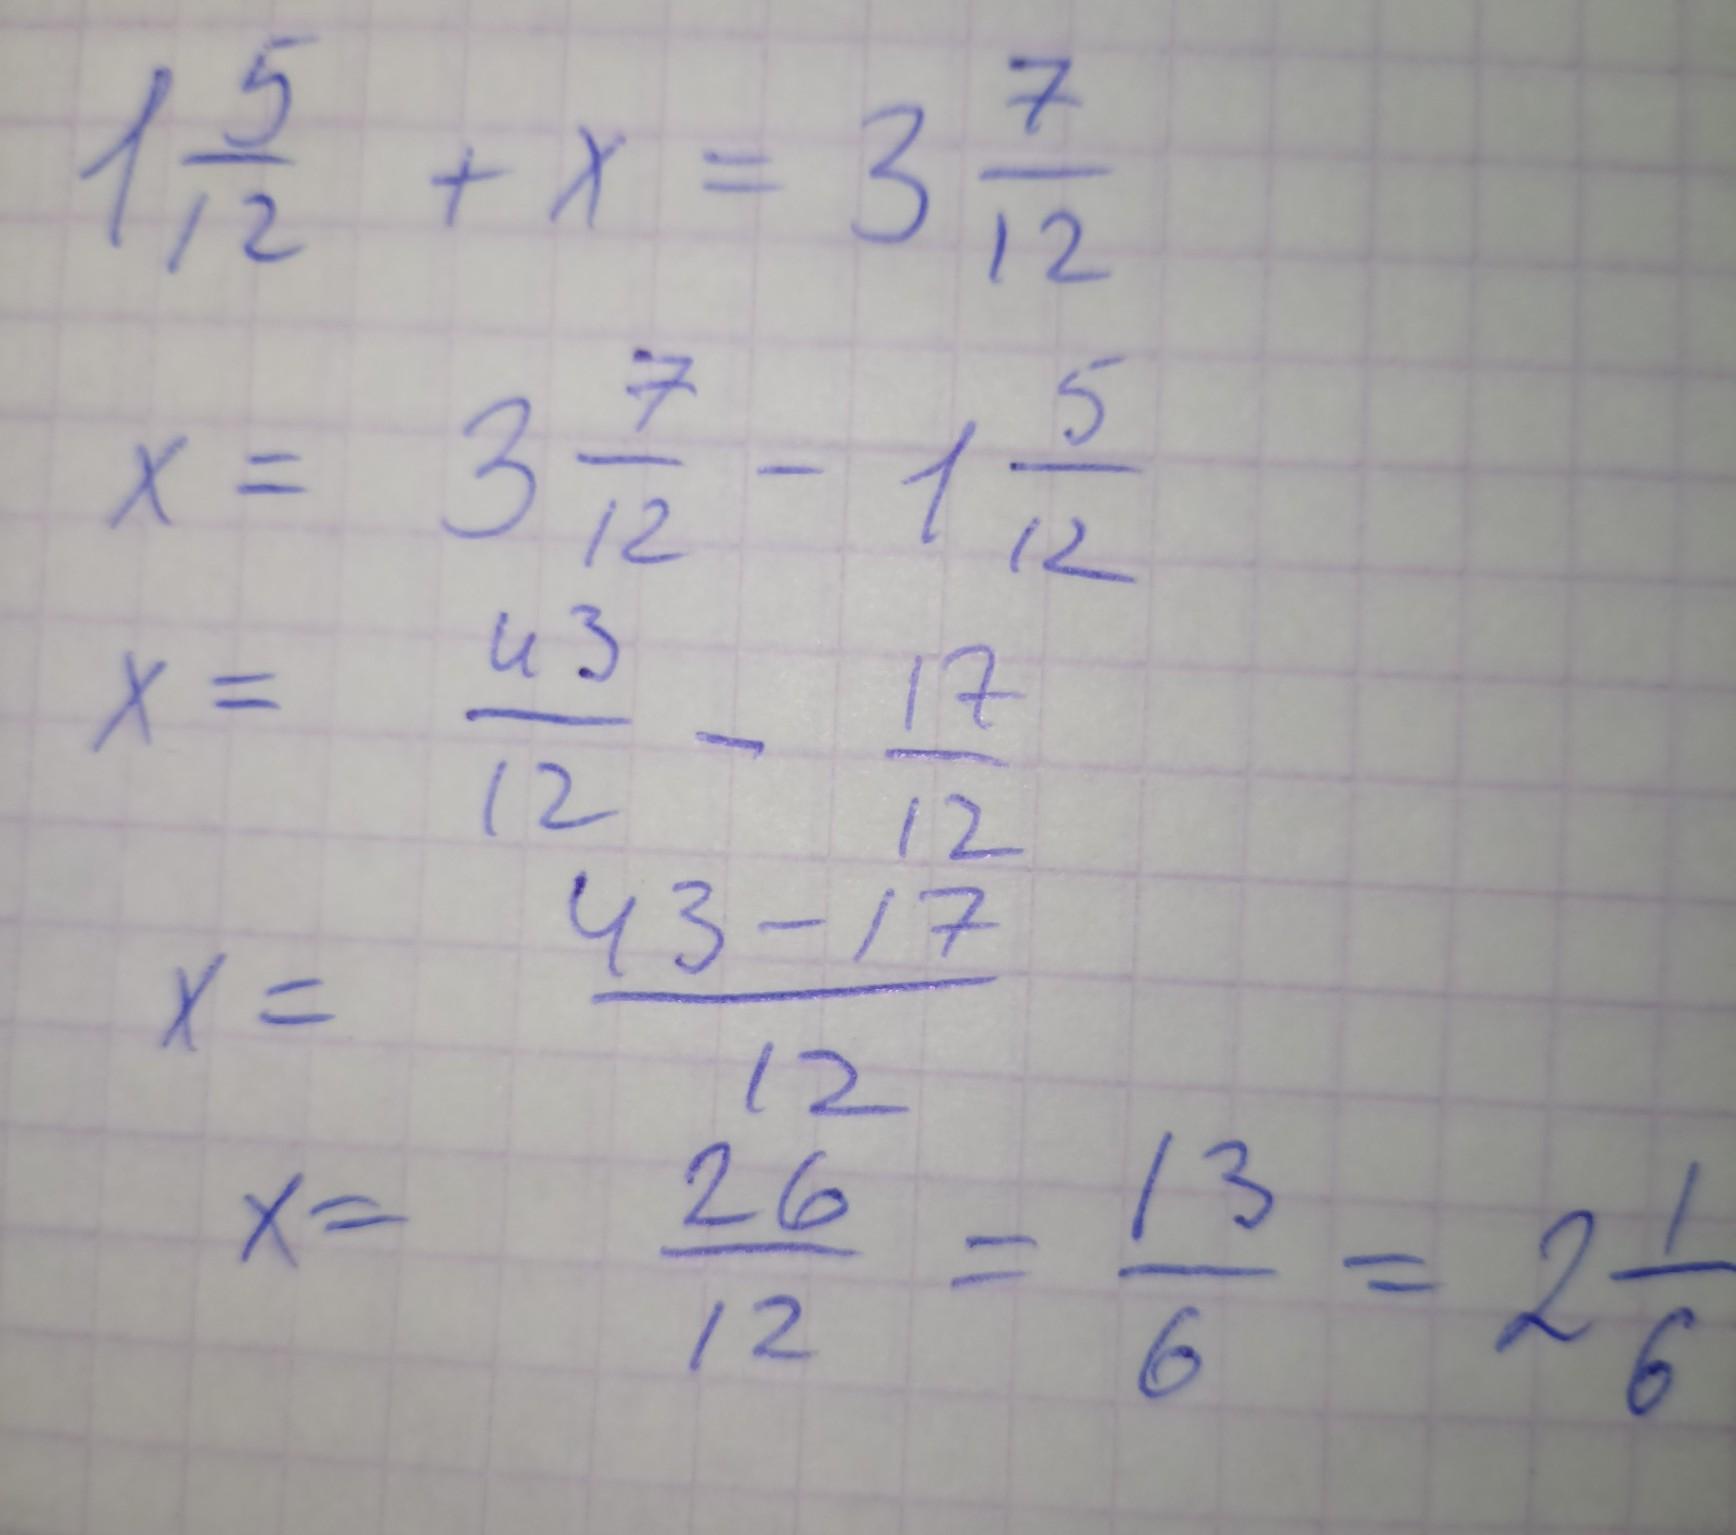 1 5/12 + x = 3 7/12
x = 3 7/12 - 1 5/12
x = 43/12 - 17/12
x = 43-17/12
x = 26/12 = 13/6 = 2 1/6